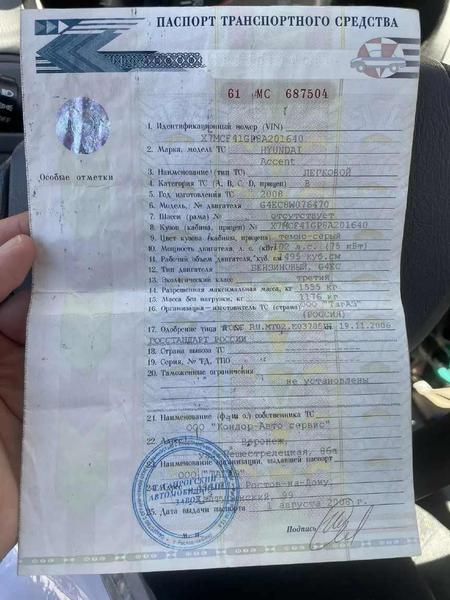 ПАСПОРТ ТРАНСПОРТНОГО СРЕДСТВА
61 МС 687504
1. Идентификационный номер (VIN)
X7MCF41GP8A201640
2. Марка, модель ТС HYUNDAI
Accent
Особые отметки
3. Наименование (тип ТС) ЛЕГКОВОЙ
4. Категория ТС (А, В, С, D, прицеп) B
5. Год изготовления ТС 2008
6. Модель, № двигателя G4EC8W076470
7. Шасси (рама) № отсутствует
8. Кузов (кабина, прицеп) № X7MCF41GP8A201640
9. Цвет кузова (кабины, прицепа) темно-серый
10. Мощность двигателя, л. с. (кВт) 102 л.с. (75 кВт)
11. Рабочий объем двигателя, куб. см 1495 куб.см
12. Тип двигателя БЕНЗИНОВЫЙ, G4EC
13. Экологический класс третий
14. Разрешенная максимальная масса, кг 1555 кг
15. Масса без нагрузки, кг 1176 кг
16. Организация-изготовитель ТС (страна) ООО "ТагАЗ"
(РОССИЯ)
17. Одобрение типа ТС № RU.MT02. 19.11.2006
РОССТАНДАРТ РОССИИ
18. Страна вывоза ТС
19. Серия, № ТД, ТПО
20. Таможенные ограничения
не установлены
21. Наименование (ф. и. о.) собственника ТС
ООО "Кондор-Авто сервис"
22. Адрес Воронеж,
ул. Пешестрелецкая,
23. Наименование организации, выдавшей паспорт
ООО "ТагАЗ"
24. Адрес Ростов-на-Дону,
99
25. Дата выдачи паспорта 1 августа 2008 г.
М. П. Подпись